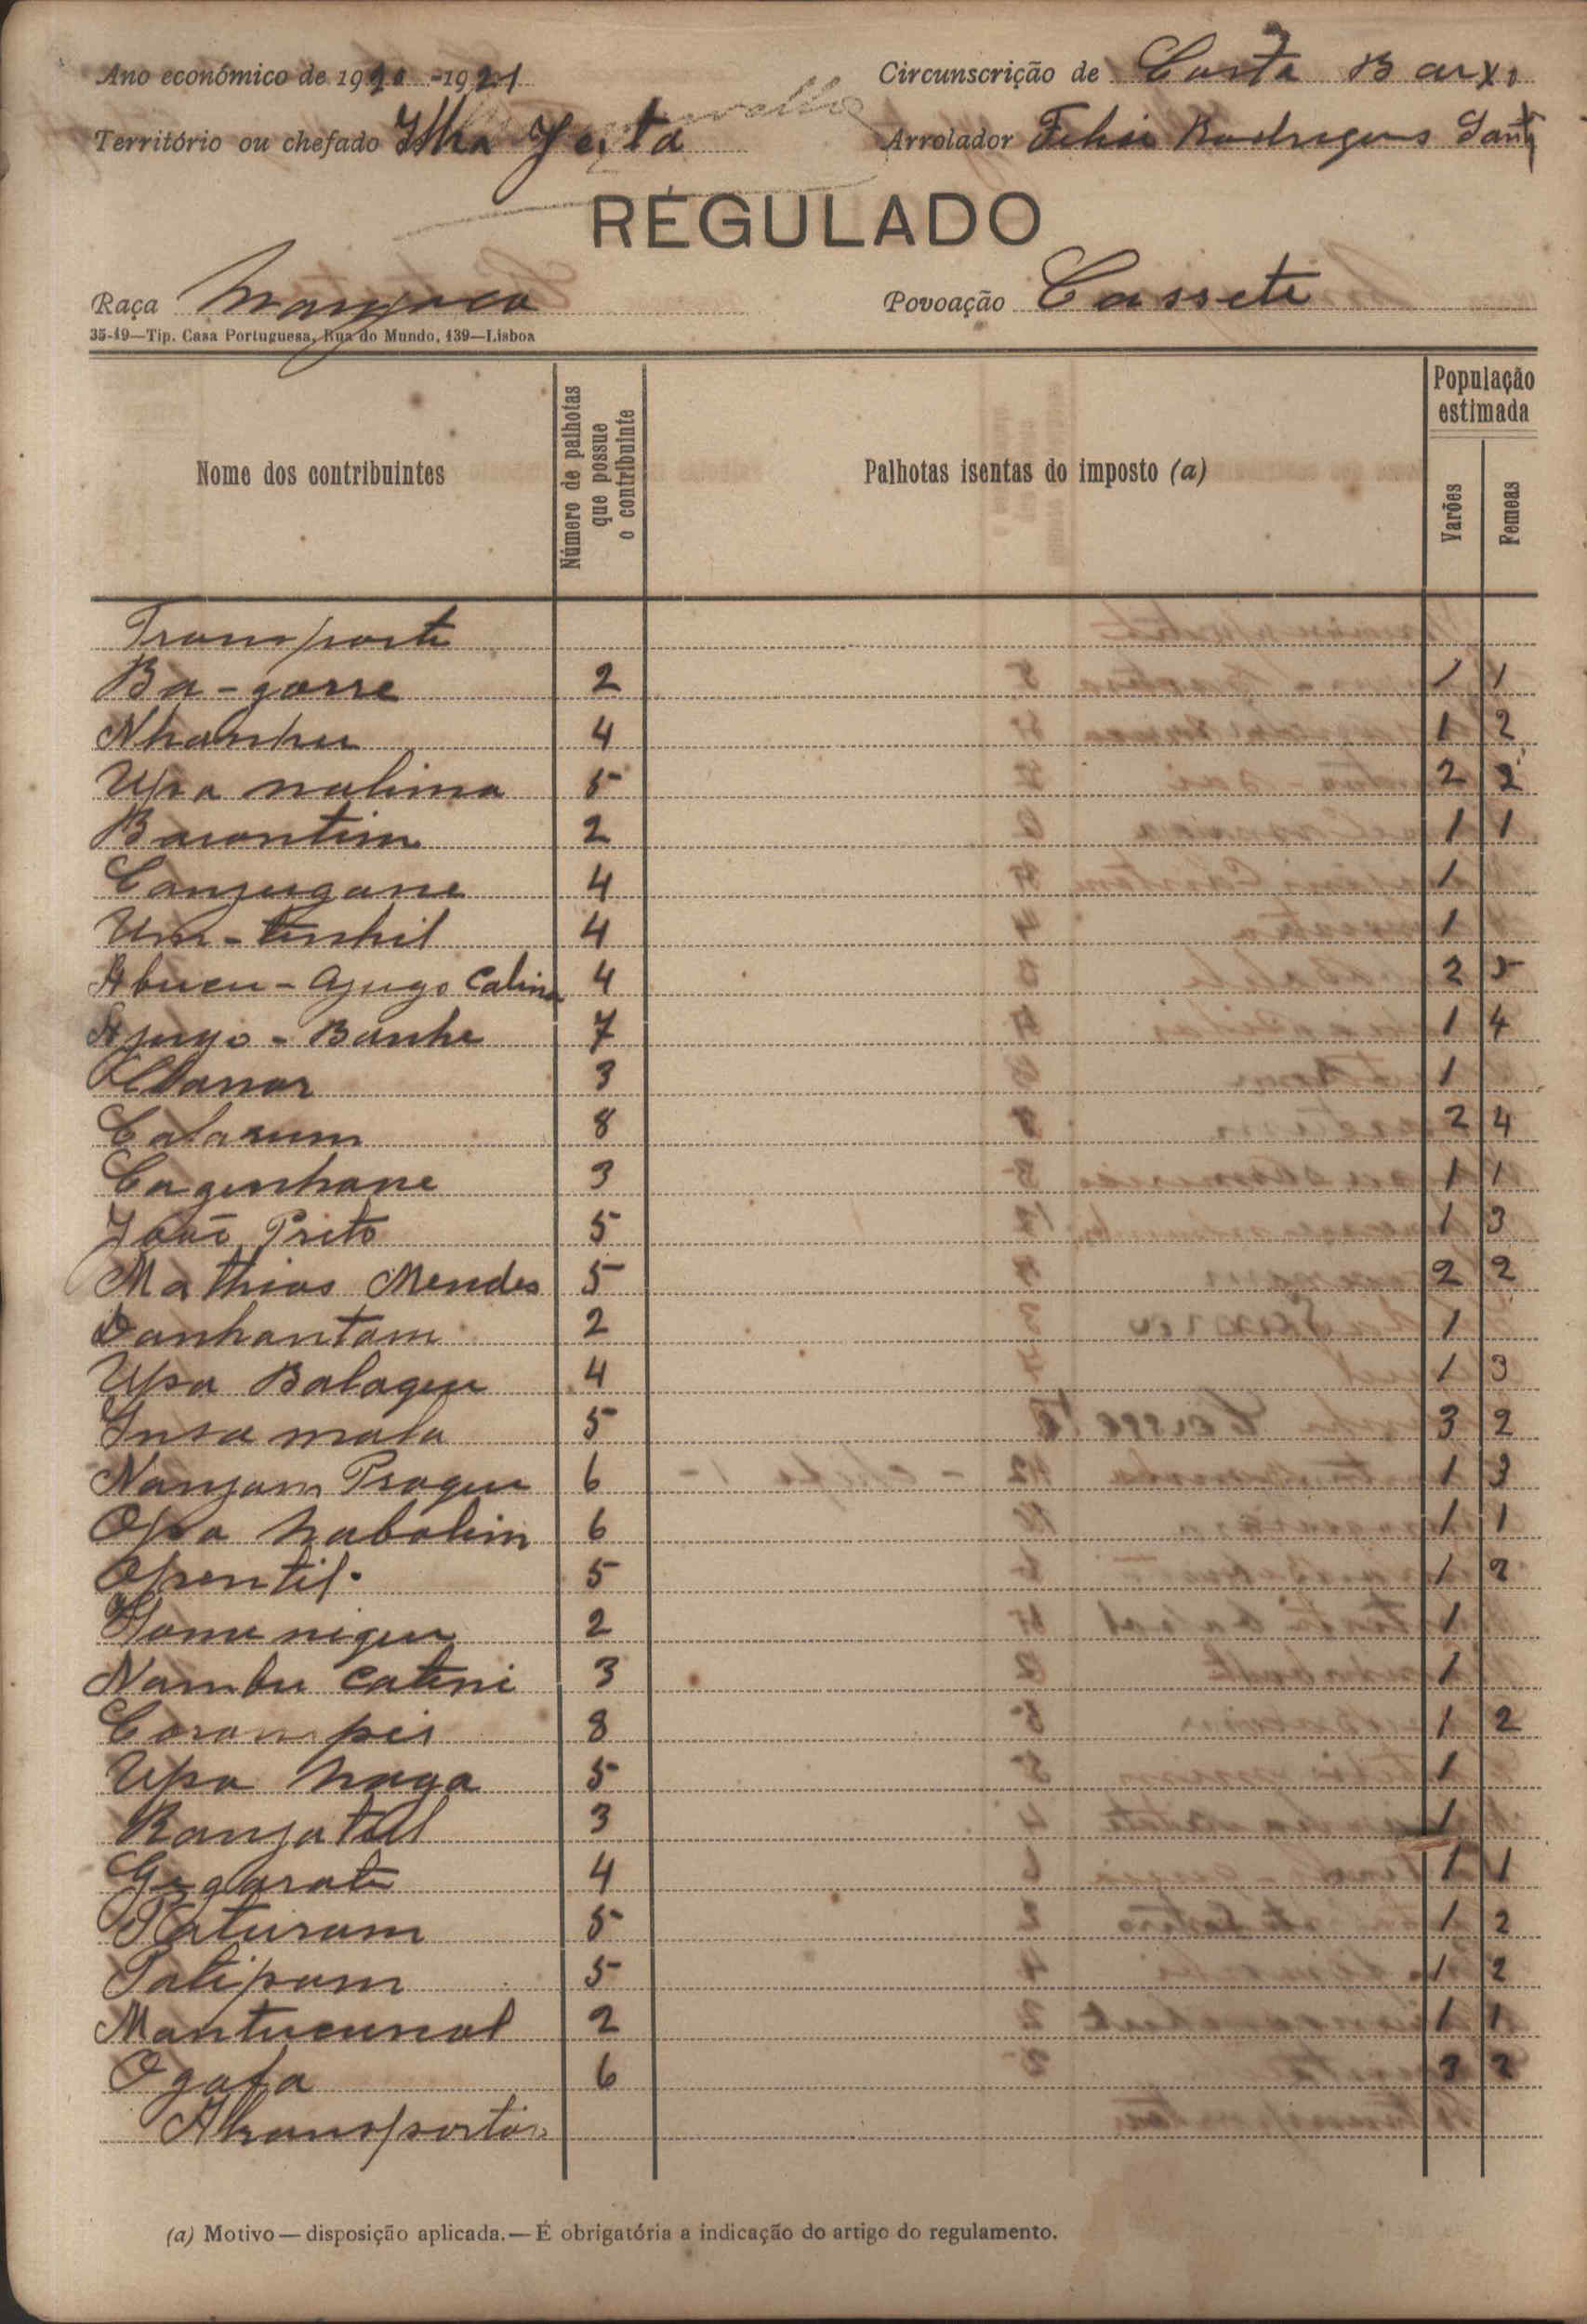 Ano económico de 1920-1921 Circunscrição de Costa Baixo
Território ou chefado Ilha Jeita Arrolador Felix Rodrigues
RÉGULADO
Raça Manjaca Povoação Cassete
35-19—Tip. Casa Portuguesa, Rua do Mundo, 139—Lisboa
Nome dos contribuintes Número de palhotas que possue o contribuinte Palhotas isentas do imposto (a) População estimada Varões Femeas
Transporte
Ba-gorre 2 1 1
Nhanhu 4 1 2
Upa nalima 5 2 2
Barontim 2 1 1
Canjugane 4 1
Um-tinhil 4 1
Abucu-Ajugo Calina 4 2 5
Ajugo-Banhe 7 1 4
3 1
Calarum 8 2 4
Cagenhane 3 1 1
João Prito 5 1 3
Mathias Mendes 5 2 2
Danhantam 2 1
Upa Balaque 4 1 3
Insa mala 5 3 2
Nanjam Praque 6 1 3
Opa Nabalim 6 1 1
Opentil 5 1 2
2 1
Nambu Catini 3 1
Corampis 8 1 2
Upa Naga 5 1
Banjatul 3 1
Gegarate 4 1 1
Paturam 5 1 2
Patipam 5 1 2
Mantucunal 2 1 1
Ogafa 6 3 2
A transportar
(a) Motivo—disposição aplicada.—É obrigatória a indicação do artigo do regulamento.